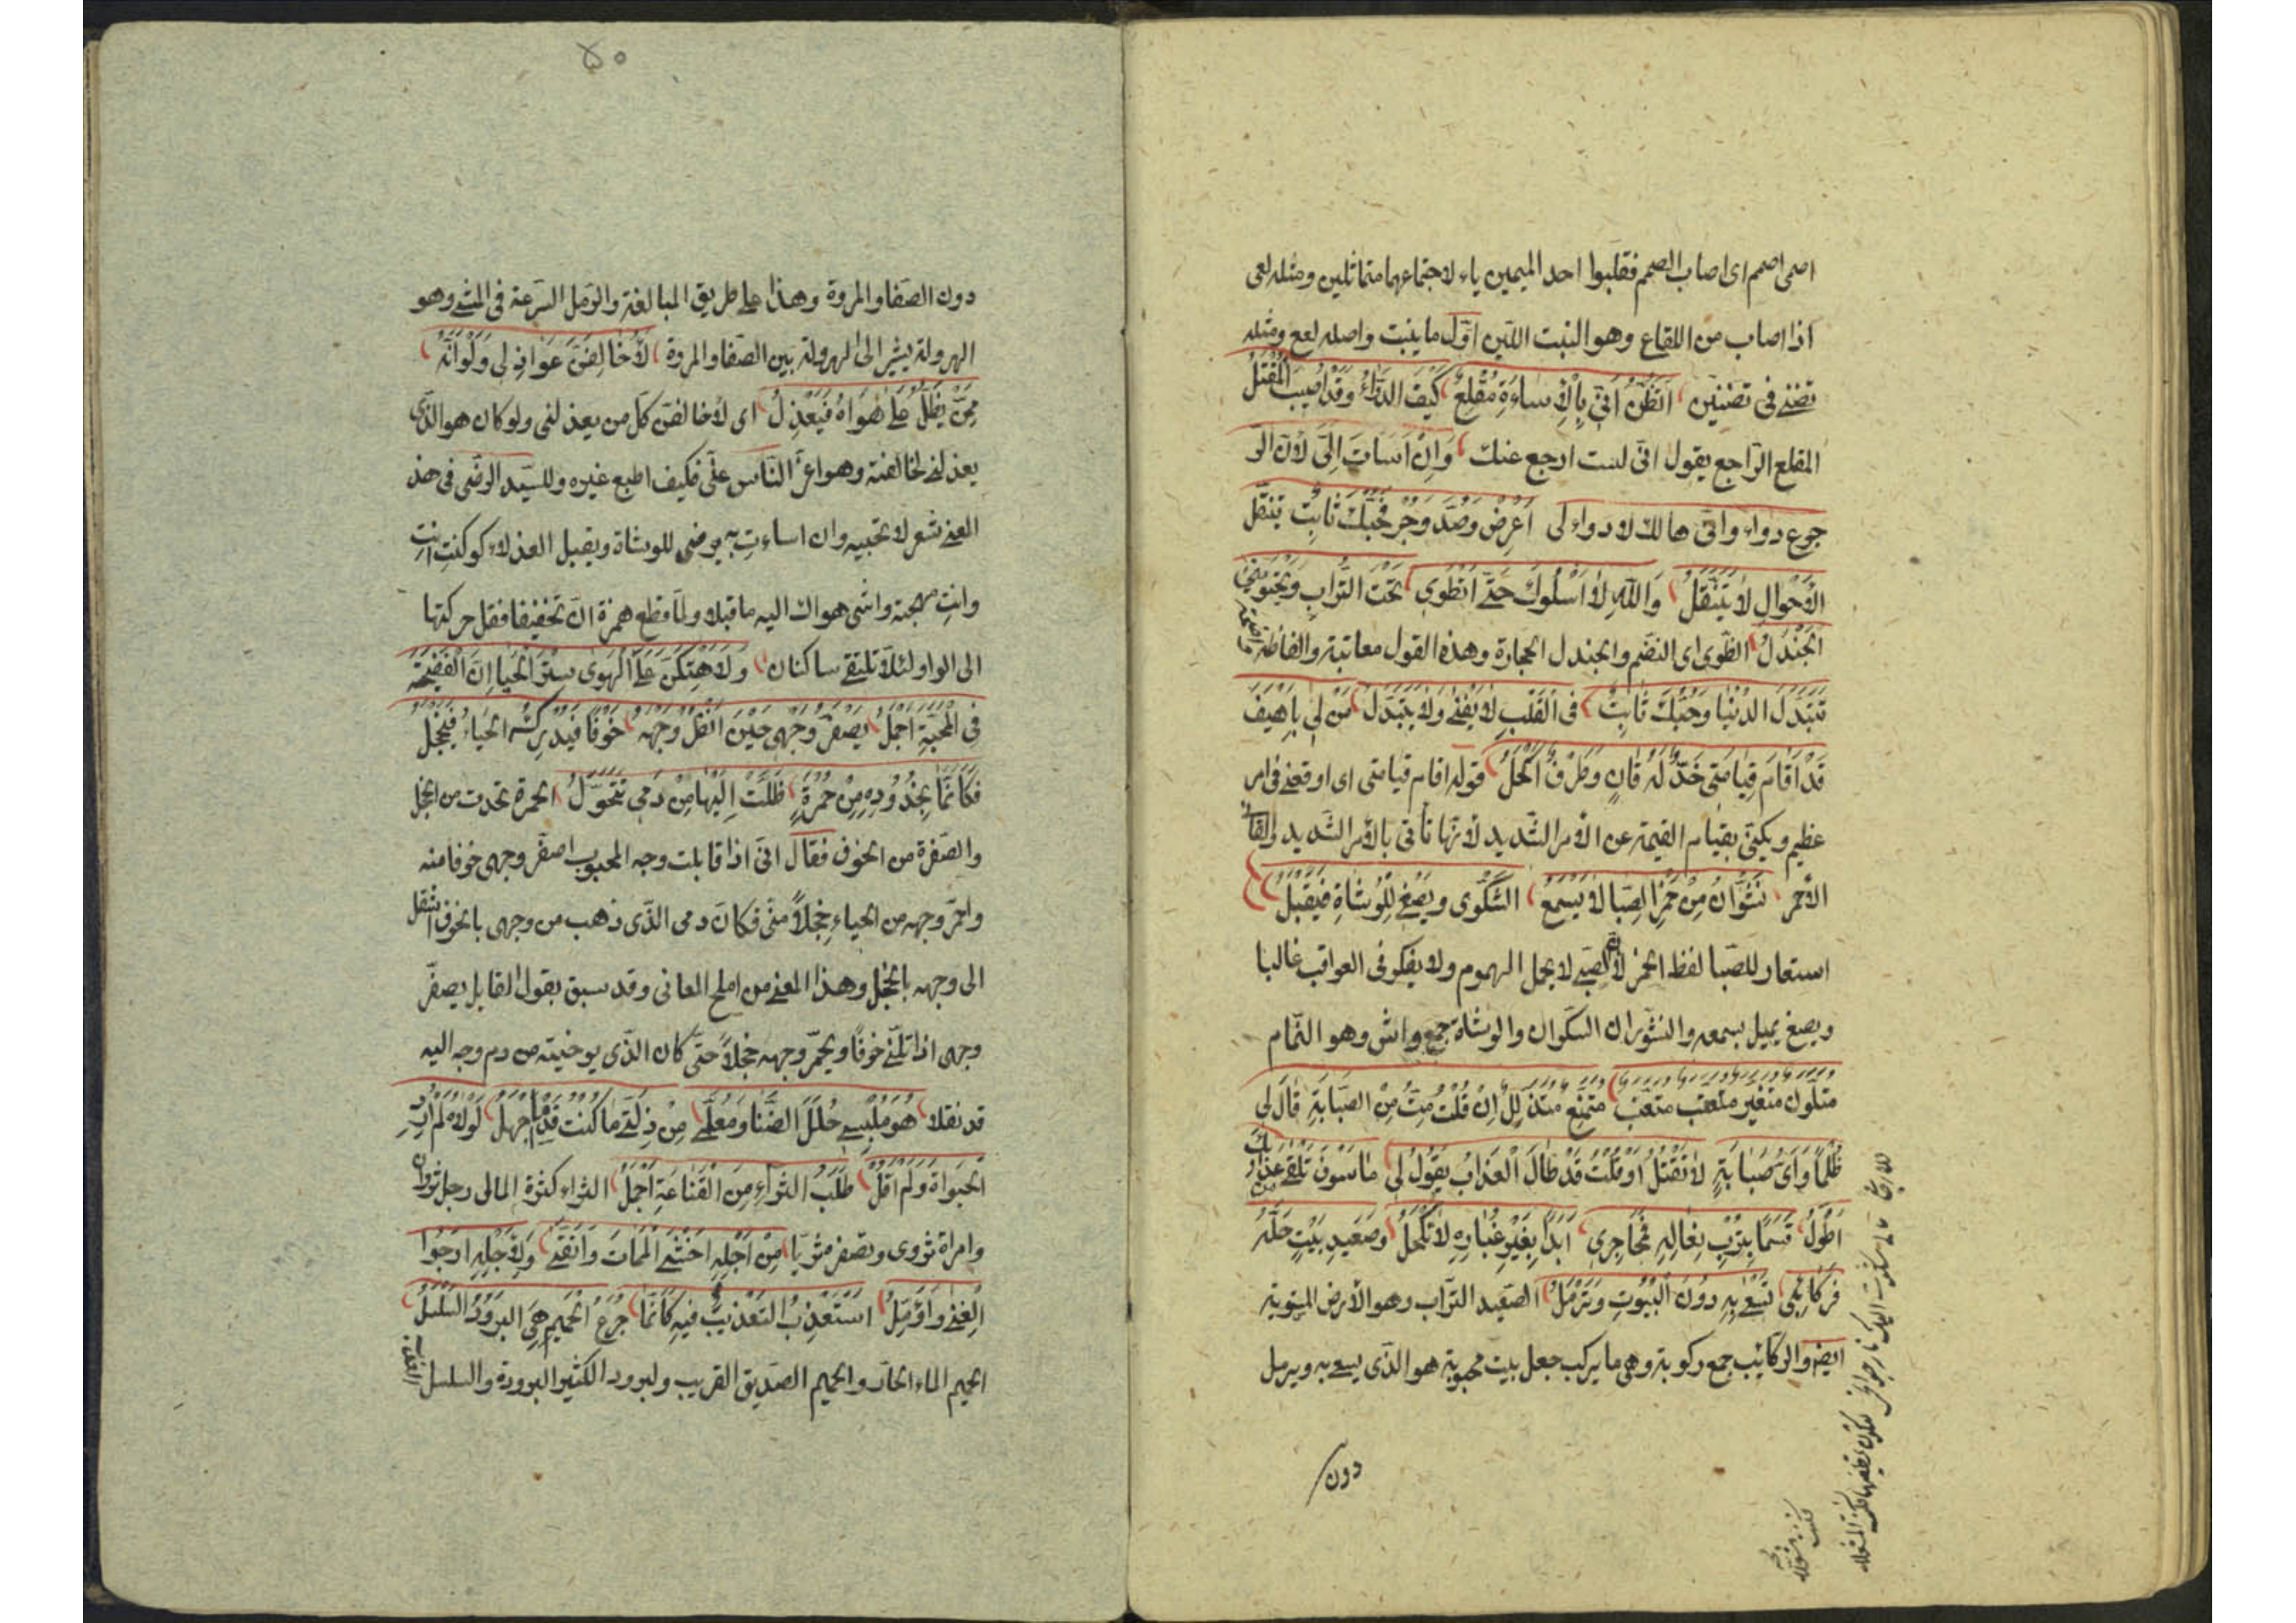 اصمى اصمم اى اصاب الصمم فقلبوا احد الميمين ياء لاجتماعهما متماثلين ومثله لعى
اذا اصاب من اللقاع وهو النبت اللين اوّل ما ينبت واصله لعع ومثله
تضنى فى تضنين اَتَظُنُّ اَنّى بِالْاِساءَةِ مُقْلِعٌ كَيْفَ الدَّوَاءُ وَقَدْ اُصِيبَ الْمَقْتَلُ
المقلع الرّاجع يقول انّى لست ارجع عنك وَاِنْ اَسَاتَ اِلَىَّ لأن الـ
جوع دواء وانّى هالك لا دواء لى اَعْرِضْ وَصُدَّ وَجُرْ فَحُبُّكَ ثَابِتٌ تَنَقُّلَ
الْاَحْوَالِ لَا يَتَنَقَّلُ وَاللّهِ لَا اَسْلُوكَ حَتَّى اَنْطَوِى تَحْتَ التُّرَابِ وَيَحْتَوِينِى
الْجَنْدَلُ انطوى اى انضم والجندل الحجارة وهذه القول معاتبة والفاظه
تَتَبَدَّلُ الدُّنْيَا وَحُبُّكَ ثَابِتٌ فِى الْقَلْبِ لَا يَفْنَى وَلَا يَتَبَدَّلُ مَنْ لِى بِاَهْيَفَ
قَدْ اَقَامَ قِيَامَتِى خَدٌّ لَهُ قَانٍ وَطَرْفٌ اَكْحَلُ قوله اقام قيامتى اى اوقعنى فى امر
عظيم ويكنّى بقيام القيمة عن الأمر الشّديد لأنّها تأتى بالأمر الشّديد والقانى
الأحمر نَشْوَانُ مِنْ خَمْرِ الصِّبَا لَا يَسْمَعُ الشَّكْوَى وَيُصْغِى لِلْوُشَاةِ فَيَقْبَلُ
استعار للصّبا لفظ الخمر لأنّ الصّبى لا يحمل الهموم ولا يفكر فى العواقب غالبا
ويصغى يميل بسمعه والنشوان السكران والوشاة جمع واش وهو النّمام
مُتَلَوِّنٌ مُتَغَيِّرٌ مُتَعَتِّبٌ مُتَعَنِّتٌ مُتَمَنِّعٌ مُتَدَلِّلُ اِنْ قُلْتُ مِتُّ مِنَ الصَّبَابَةِ قَالَ لِى
ظُلْمًا وَاَىُّ صَبَابَةٍ لَا تَقْتُلُ اَوْ قُلْتُ قَدْ طَالَ الْعَذَابُ يَقُولُ لِى مَا سَوْفَ تَلْقَى مِنْ عَذَابِكَ
اَطْوَلُ قَسَمًا بِتُرْبِ نِعَالِهِ فَمَحَاجِرِى اَبَدًا بِغَيْرِ غُبَارِهِ لَا تُكْحَلُ وَصَعِيدِ بَيْتٍ حَلَّهُ
فَرَكَائِبِى تَسْعَى بِهِ دُونَ الْبُيُوتِ وَتَرْمُلُ الصّعيد التّراب وهو الأرض المستوية
ايضا والركائب جمع ركوبة وهى ما يركب جعل بيت محبوبة هو الذّى يسعى به ويرمل
دون
دون الصّفا والمروة وهذا على طريق المبالغة والرّمل السّرعة فى المشى وهو
الهرولة يشير الى الهرولة بين الصّفا والمروة لَاُخَالِفَنَّ عَوَاذِلِى وَلَوْ اَنَّهُ
مِمَّنْ يَظَلُّ عَلَى هَوَاهُ فَيَعْذِلُ اى لأخالفنّ كلّ من يعذلنى ولو كان هو الذّى
يعذلنى لخالفته وهو اعزّ النّاس علىّ فكيف اطيع غيره وللسّيد الرضّى فى هذ
المعنى شعر لا تحبيه وان اساءتِ به يرضى للوشاة ويقبل العذلاء كو كنتِ انتِ
وانتِ مهجته واشى هواك اليه ما قبلا ولمّا قطع همزة انّ تخفيفا فقل حركتها
الى الواو لئلّا تلتقى ساكنان وَلَاَهْتِكَنَّ عَلَى الْهَوَى سِتْرَ الْحَيَا اِنَّ الْفَضِيحَةَ
فِى الْمَحَبَّةِ اَجْمَلُ يَصْفَرُّ وَجْهِى حِيْنَ اَنْظُرُ وَجْهَهُ خَوْفًا فَيُدْرِكُهُ الْحَيَاءُ فَيَخْجَلُ
فَكَاَنَّمَا بِخُدُودِهِ مِنْ حُمْرَةٍ ظَلَّتْ اِلَيْهَا مِنْ دَمِى تَتَحَوَّلُ الحمرة تحدث من الخجل
والصّفرة من الخوف فقال انّى اذا قابلت وجه المحبوب اصفرّ وجهى خوفا منه
واحمرّ وجهه من الحياء خجلاً منّى فكانَ دمى الذّى ذهب من وجهى بالخوف انتقل
الى وجهه بالخجل وهذا المعنى من املح المعانى وقد سبق بقول القايل يصفرّ
وجهى اذا تلنّى خوفًا ويحمرّ وجهه خجلاً حتّى كان الذّى بوجنيته من دم وجه اليه
قد نقلا هُوَ مُلْبِسِى حُلَلَ الضَّنَا وَمُعَلِّمِى مِنْ ذِلَّتِى مَا كُنْتُ قِدْمًا اَجْهَلُ لَوْلَاهُ لَمْ اَرِدِ
الْحَيَوَاةَ وَلَمْ اَقُلْ طَلَبُ الثَّرَاءِ مِنَ الْقَنَاعَةِ اَجْمَلُ الثراء كثرة المال رجل ثروان
وامراة ثروى وتصغر ثريّا مِنْ اَجْلِهِ اَخْشَى الْمَمَاتَ وَاَتَّقِى وَلِاَجْلِهِ اَرْجُوا
الْغِنَى وَاُؤَمِّلُ اَسْتَعْذِبُ التَّعْذِيبَ فِيهِ كَاَنَّمَا جُرَعُ الْحَمِيمِ هِىَ الْبَرُودُ السَّلْسَلُ
الحميم الماء الحارّ والحميم الصّديق القريب ولبرود الكثير البرودة والسلسل العذب